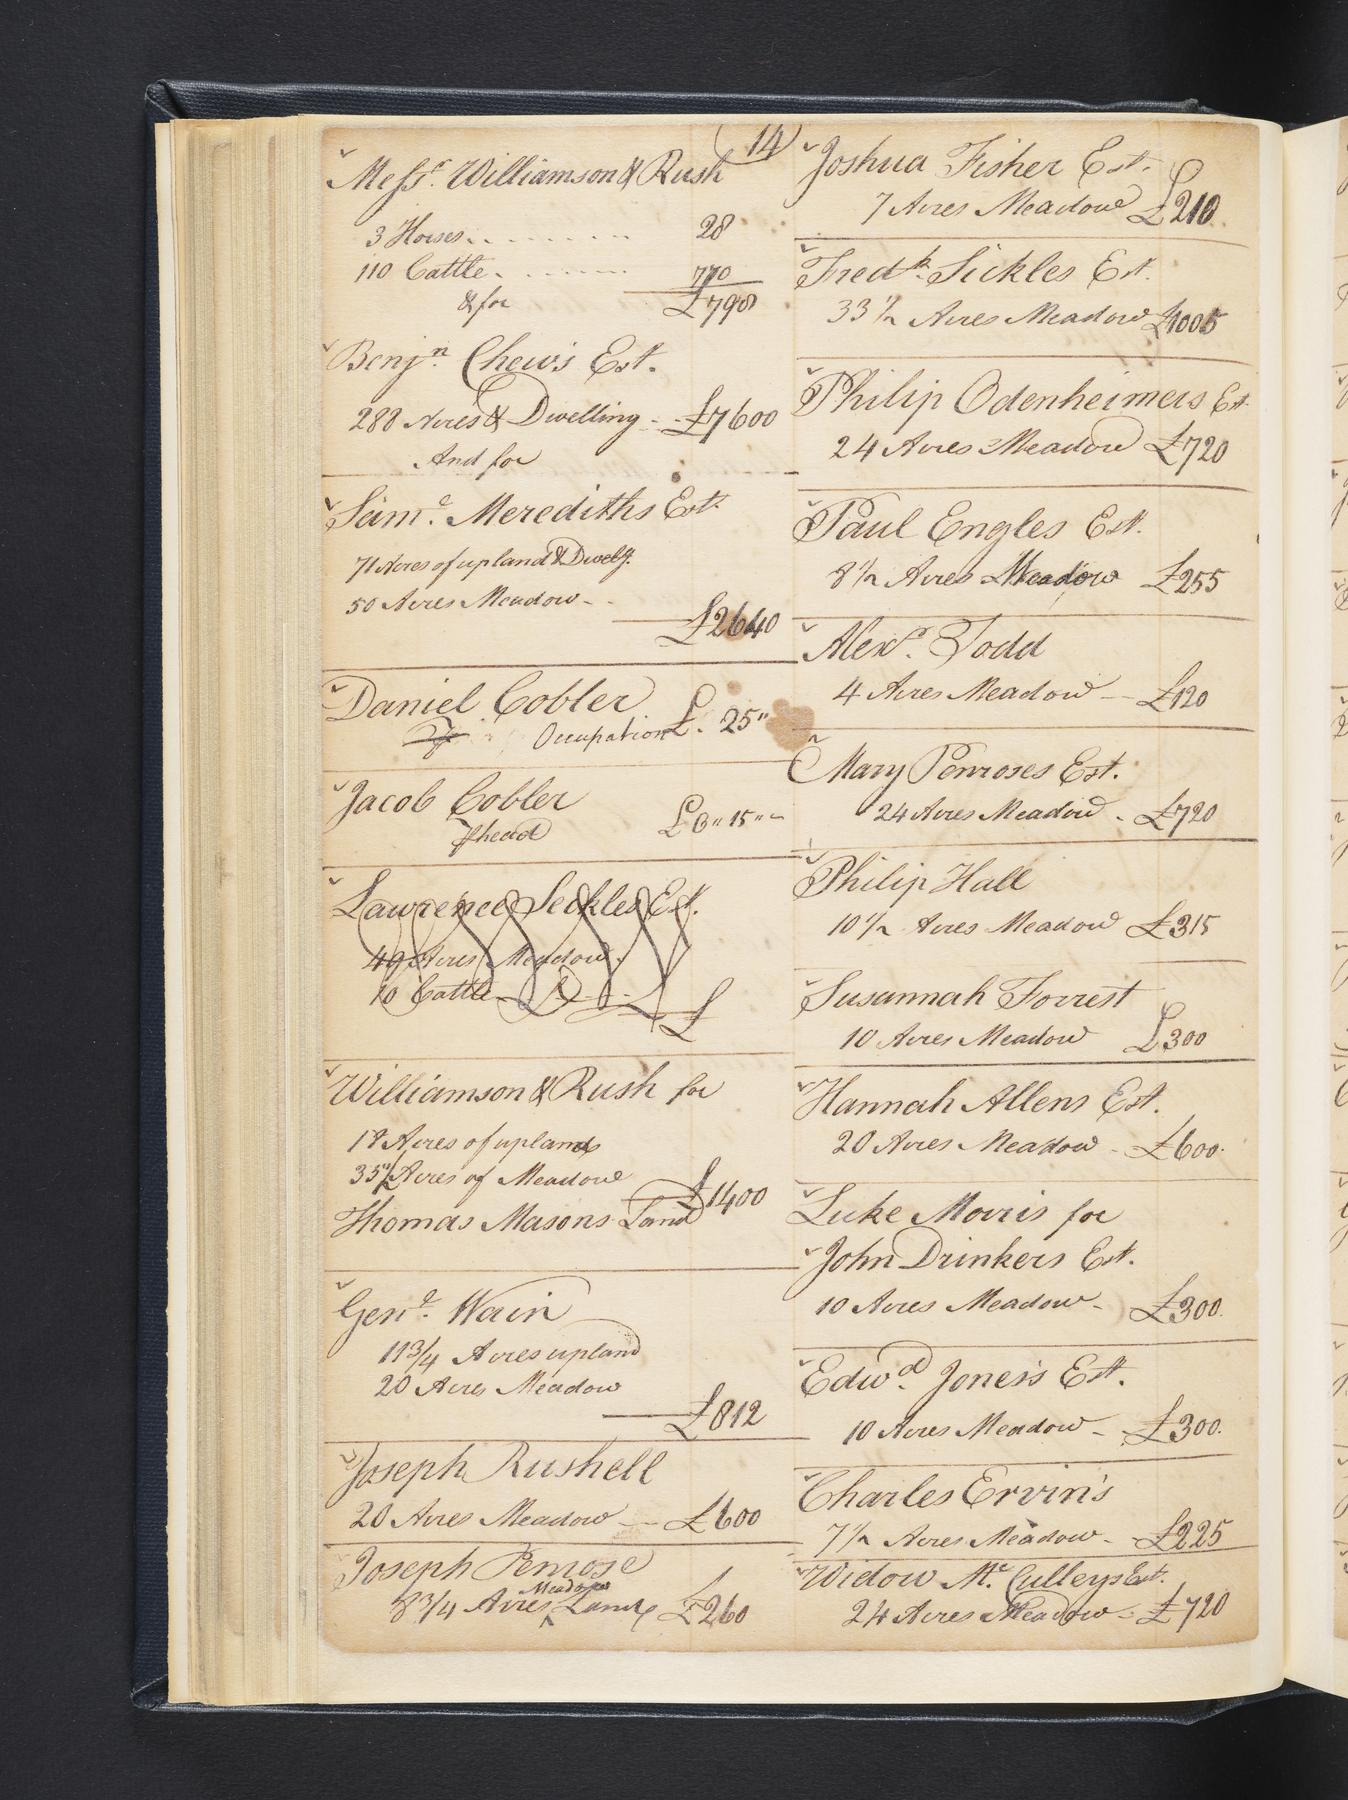 14
Messrs. Williamson & Rush
3 Horses 28
110 Cattle 770
& for £798
Benjn. Chews Est.
288 Acres & Dwelling £7600
And for
Saml. Merediths Est.
71 Acres of upland & Dwelg.
50 Acres Meadow
£2640
Daniel Cobler
Occupation £ 25"
Jacob Cobler
Phead £6" 15"
Lawrence Seckles Est.
49 Acres Meadow
10 Cattle £
Williamson & Rush for
18 Acres of upland
35 1/2 Acres of Meadow
£1400
Thomas Masons Land
Genl. Wain
11 3/4 Acres upland
20 Acres Meadow
£812
Joseph Rushell
20 Acres Meadow £600
Joseph Penrose
Meadow
8 3/4 Acres ^ Land £260
Joshua Fisher Est.
7 Acres Meadow £210
Fredk. Sickles Est.
33 1/2 Acres Meadow £1005
Philip Odenheimers Est.
24 Acres Meadow £720
Paul Engles Est.
8 1/2 Acres Meadow £255
Alexr. Todd
4 Acres Meadow £120
Mary Penroses Est.
24 Acres Meadow £720
Philip Hall
10 1/2 Acres Meadow £315
Susannah Forrest
10 Acres Meadow £300
Hannah Allens Est.
20 Acres Meadow £600
Luke Morris for
John Drinkers Est.
10 Acres Meadow £300
Edwd. Jones's Est.
10 Acres Meadow £300
Charles Ervin's
7 1/2 Acres Meadow £225
Widow Mc. Culleys Est.
24 Acres Meadow £720